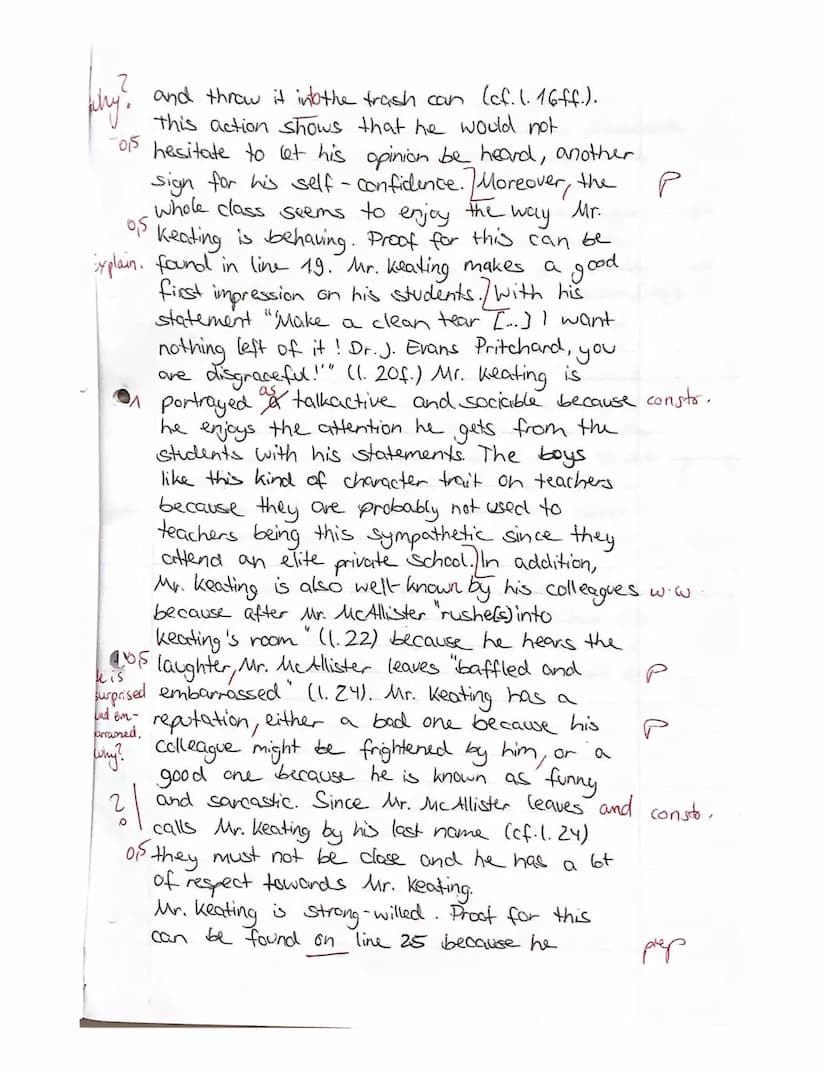 ?
why? and throw it into the trash can (cf. l. 16ff.).
This action shows that he would not
-0,5 hesitate to let his opinion be heard, another
sign for his self-confidence. Moreover, the P
whole class seems to enjoy the way Mr.
0,5 Keating is behaving. Proof for this can be
explain. found in line 19. Mr. Keating makes a good
first impression on his students. With his
statement "'Make a clean tear [...] I want
nothing left of it! Dr. J. Evans Pritchard, you
are disgraceful!'" (l. 20f.) Mr. Keating is
1 portrayed as talkactive and sociable because constr.
he enjoys the attention he gets from the
students with his statements. The boys
like this kind of character trait on teachers
because they are probably not used to
teachers being this sympathetic since they
attend an elite private school. In addition,
Mr. Keating is also well-known by his colleagues w.w.
because after Mr. McAllister "rushe(s) into
Keating's room" (l. 22) because he hears the
0,5 laughter, Mr. McAllister leaves "baffled and P
He is
surprised embarrassed" (l. 24). Mr. Keating has a
and em- reputation, either a bad one because his P
barrassed. colleague might be frightened by him, or a
Why? good one because he is known as funny
? and sarcastic. Since Mr. McAllister leaves and constr.
calls Mr. Keating by his last name (cf. l. 24)
0,5 they must not be close and he has a lot
of respect towards Mr. Keating.
Mr. Keating is strong-willed. Proof for this
can be found on line 25 because he prep